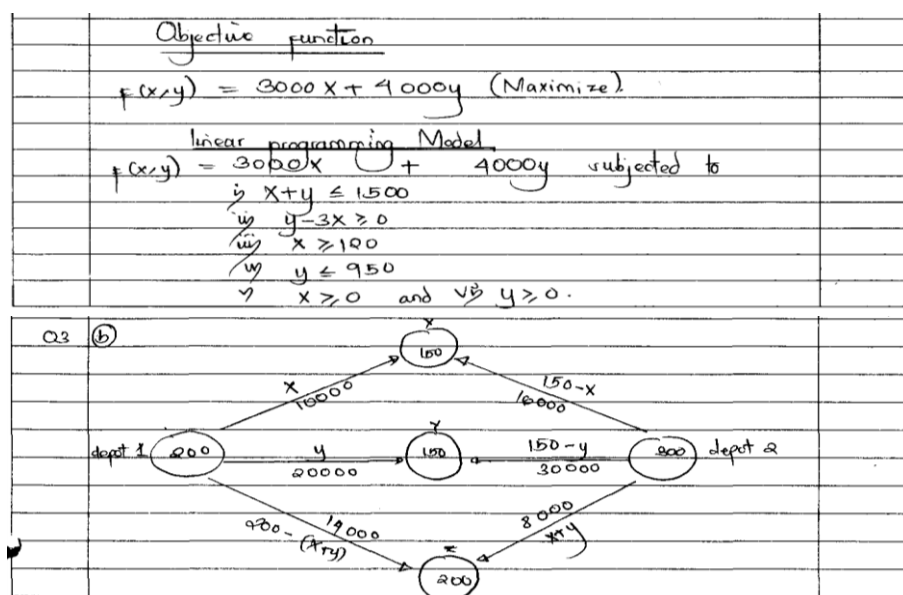 Objective function
f(x,y) = 3000x + 4000y (Maximize).
linear programming Model
f(x,y) = 3000x + 4000y subjected to
i) x+y ≤ 1500
ii) y-3x ≥ 0
iii) x ≥ 120
iv) y ≤ 950
v) x ≥ 0 and vi) y ≥ 0.
Q3 (b)
X
150
x 150-x
10000 10000
Y
depot 1 200 y 150 150-y 300 depot 2
20000 30000
14000 8000
200-(x+y) x+y
Z
200